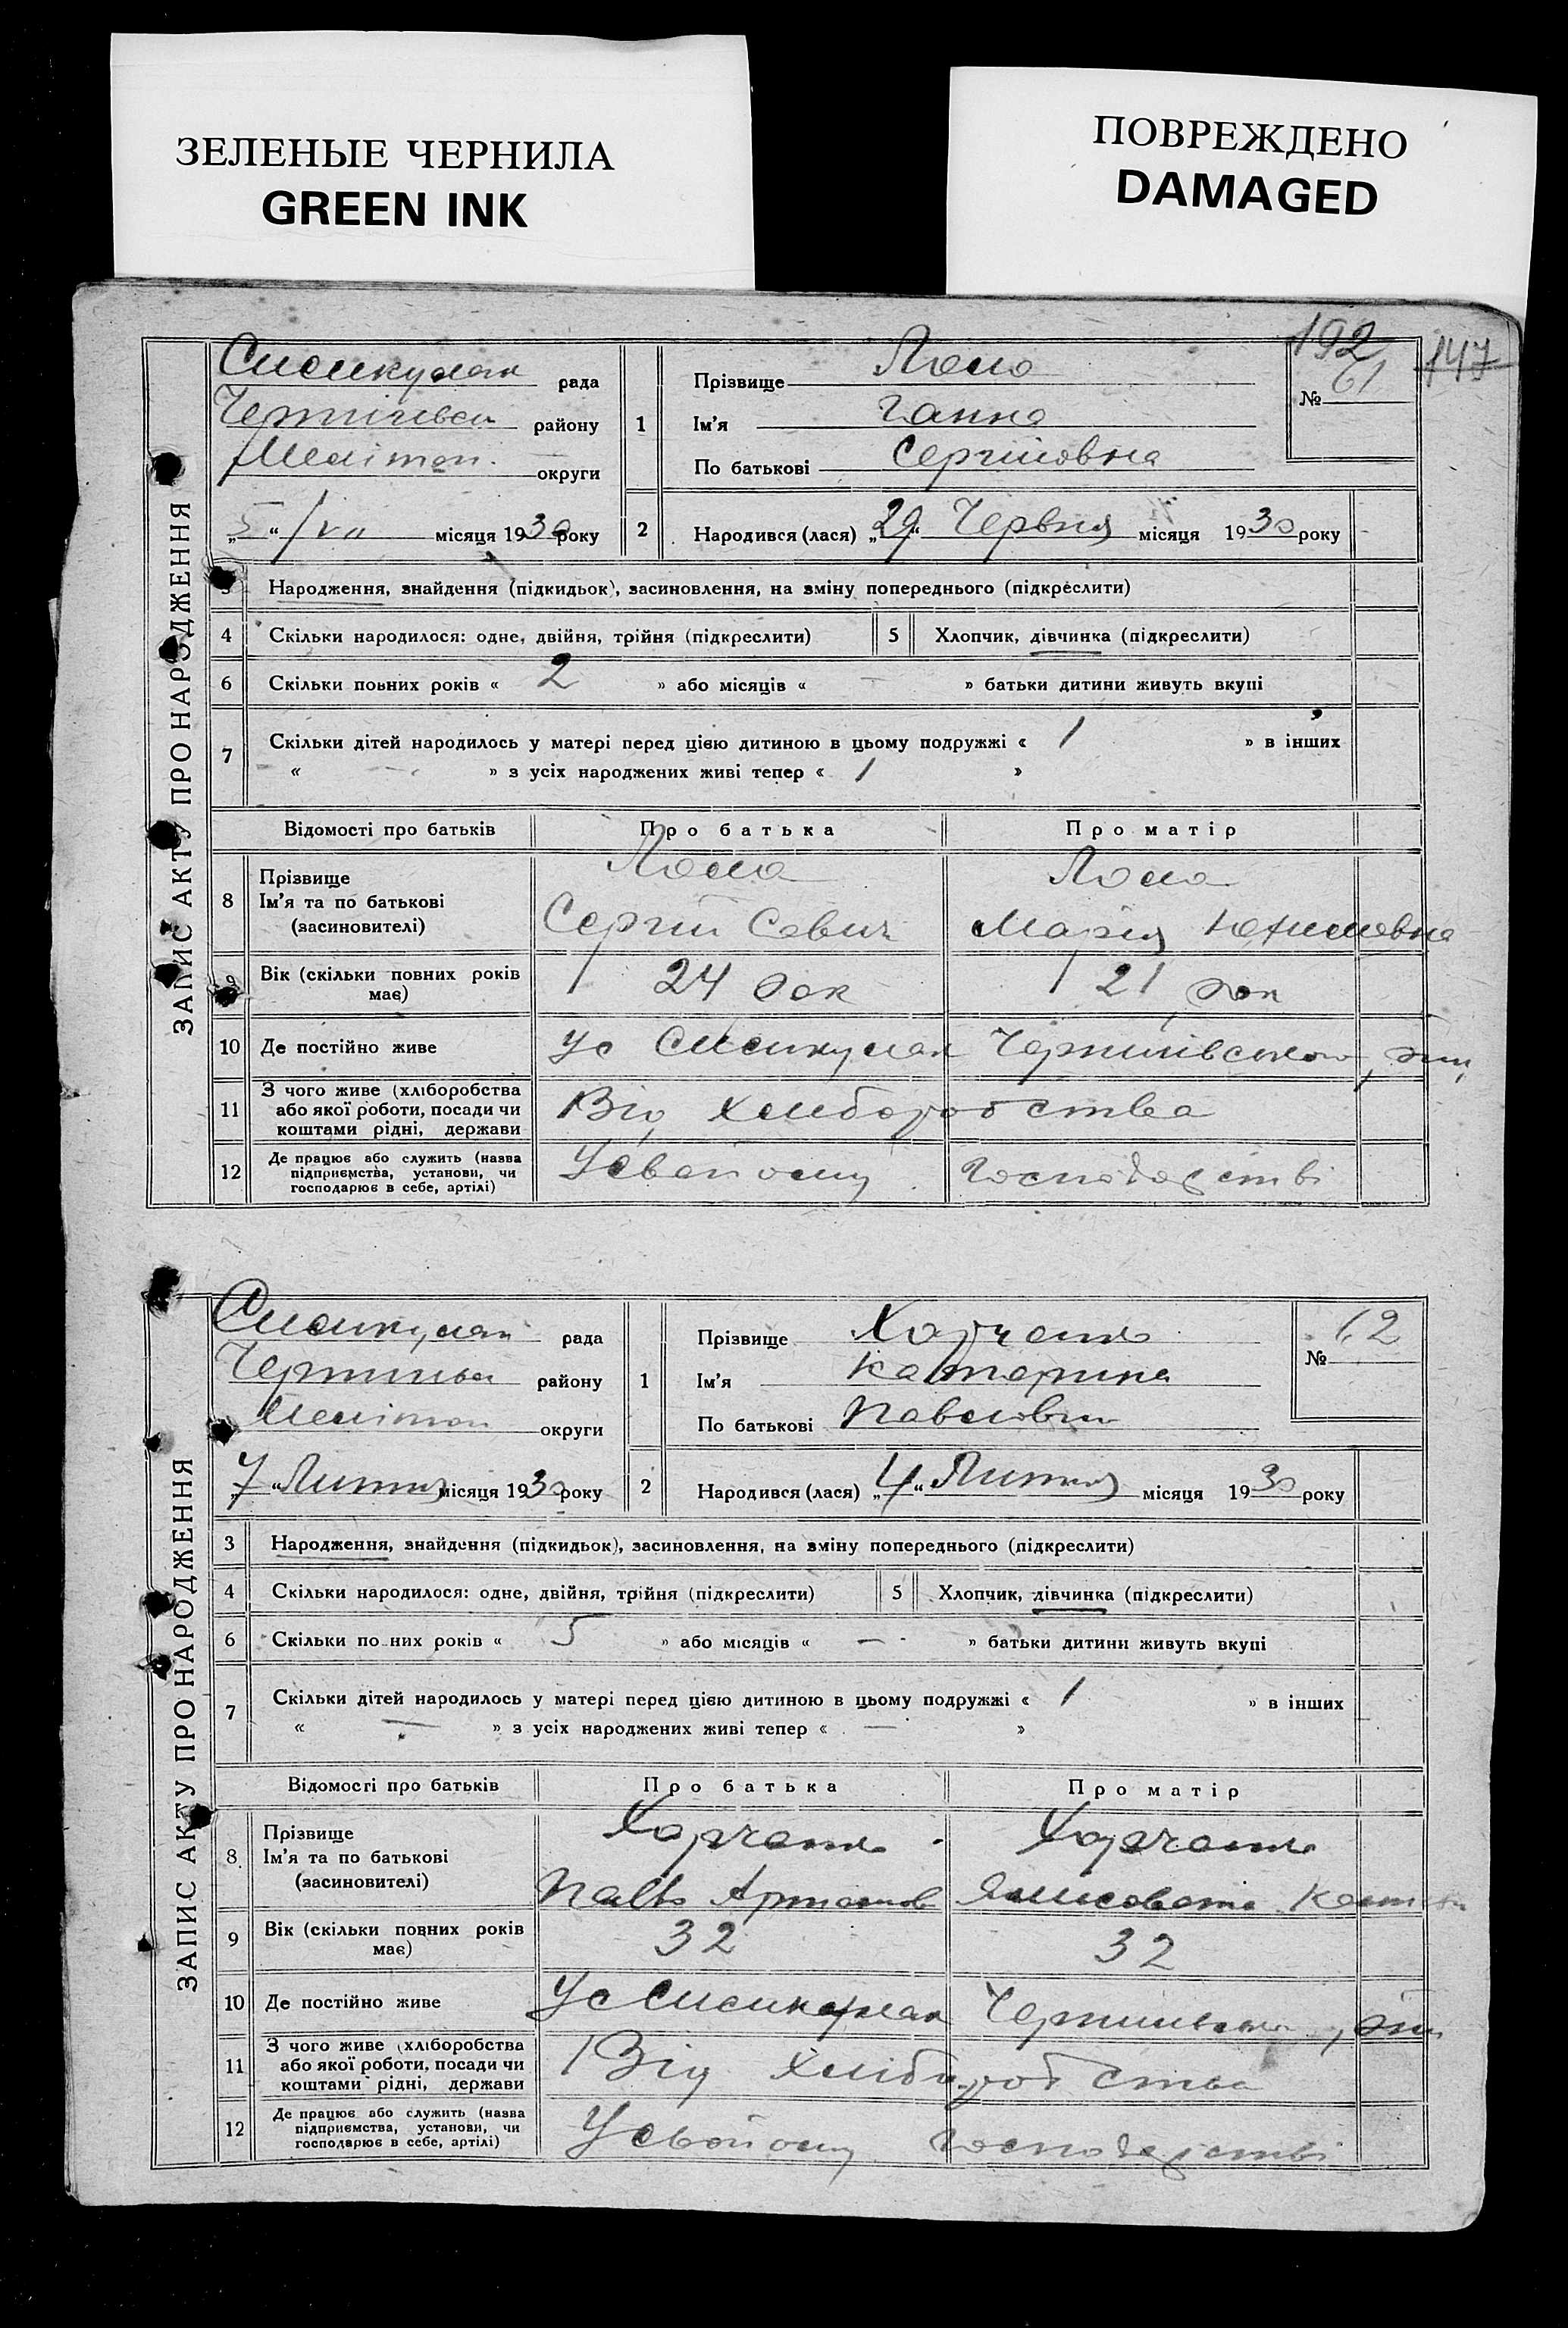 ЗЕЛЕНЫЕ ЧЕРНИЛА
GREEN INK
ПОВРЕЖДЕНО
DAMAGED
192
147
ЗАПИС АКТУ ПРО НАРОДЖЕННЯ
рада
району
Мелітоп. округи
"5" місяця 1930 року
1
Прізвище
Ім'я Ганна
По батькові Сергіiовна
№ 61
2
Народився (лася) "29" Червня місяця 1930 року
3
Народження, знайдення (підкидьок), засиновлення, на зміну попереднього (підкреслити)
4 Скільки народилося: одне, двійня, трійня (підкреслити) 5 Хлопчик, дівчинка (підкреслити)
6 Скільки повних років « 2 » або місяців « — » батьки дитини живуть вкупі
7 Скільки дітей народилось у матері перед цією дитиною в цьому подружжі « 1 » в інших
« — » з усіх народжених живі тепер « 1 »
Відомості про батьків Про батька Про матір
8 Прізвище
Ім'я та по батькові
(засиновителі)
Сергій Савич Марія
9 Вік (скільки повних років має) 24 рок 21 рок
10 Де постійно живе Ус
11 З чого живе (хліборобства або якої роботи, посади чи коштами рідні, держави Від хліборобства
12 Де працює або служить (назва підприємства, установи, чи господарює в себе, артілі) Усвойому господарстві
ЗАПИС АКТУ ПРО НАРОДЖЕННЯ
рада
району
Мелітоп округи
"7" Лютня місяця 1930 року
1
Прізвище Харченко
Ім'я Катерина
По батькові Павловна
№ 62
2
Народився (лася) "4" Лютня місяця 1930 року
3 Народження, знайдення (підкидьок), засиновлення, на зміну попереднього (підкреслити)
4 Скільки народилося: одне, двійня, трійня (підкреслити) 5 Хлопчик, дівчинка (підкреслити)
6 Скільки по них років « 5 » або місяців « — » батьки дитини живуть вкупі
7 Скільки дітей народилось у матері перед цією дитиною в цьому подружжі « 1 » в інших
« — » з усіх народжених живі тепер « — »
Відомості про батьків Про батька Про матір
8 Прізвище
Ім'я та по батькові
(засиновителі)
Харченко Харченко
Павло Артемов
9 Вік (скільки повних років має) 32 32
10 Де постійно живе Ус
11 З чого живе (хліборобства або якої роботи, посади чи коштами рідні, держави Від хліборобства
12 Де працює або служить (назва підприємства, установи, чи господарює в себе, артілі) Усвойому господарстві